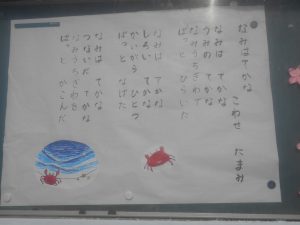 なみはてかな
こわせ たまみ
なみは てかな
うみの てかな
なみうちぎわで
ぱっと ひらいた
なみは てかな
しろい てかな
かいがら ひとつ
ぱっと なげた
なみは てかな
つないだ てかな
なみうちぎわを
ぱっと かこんだ